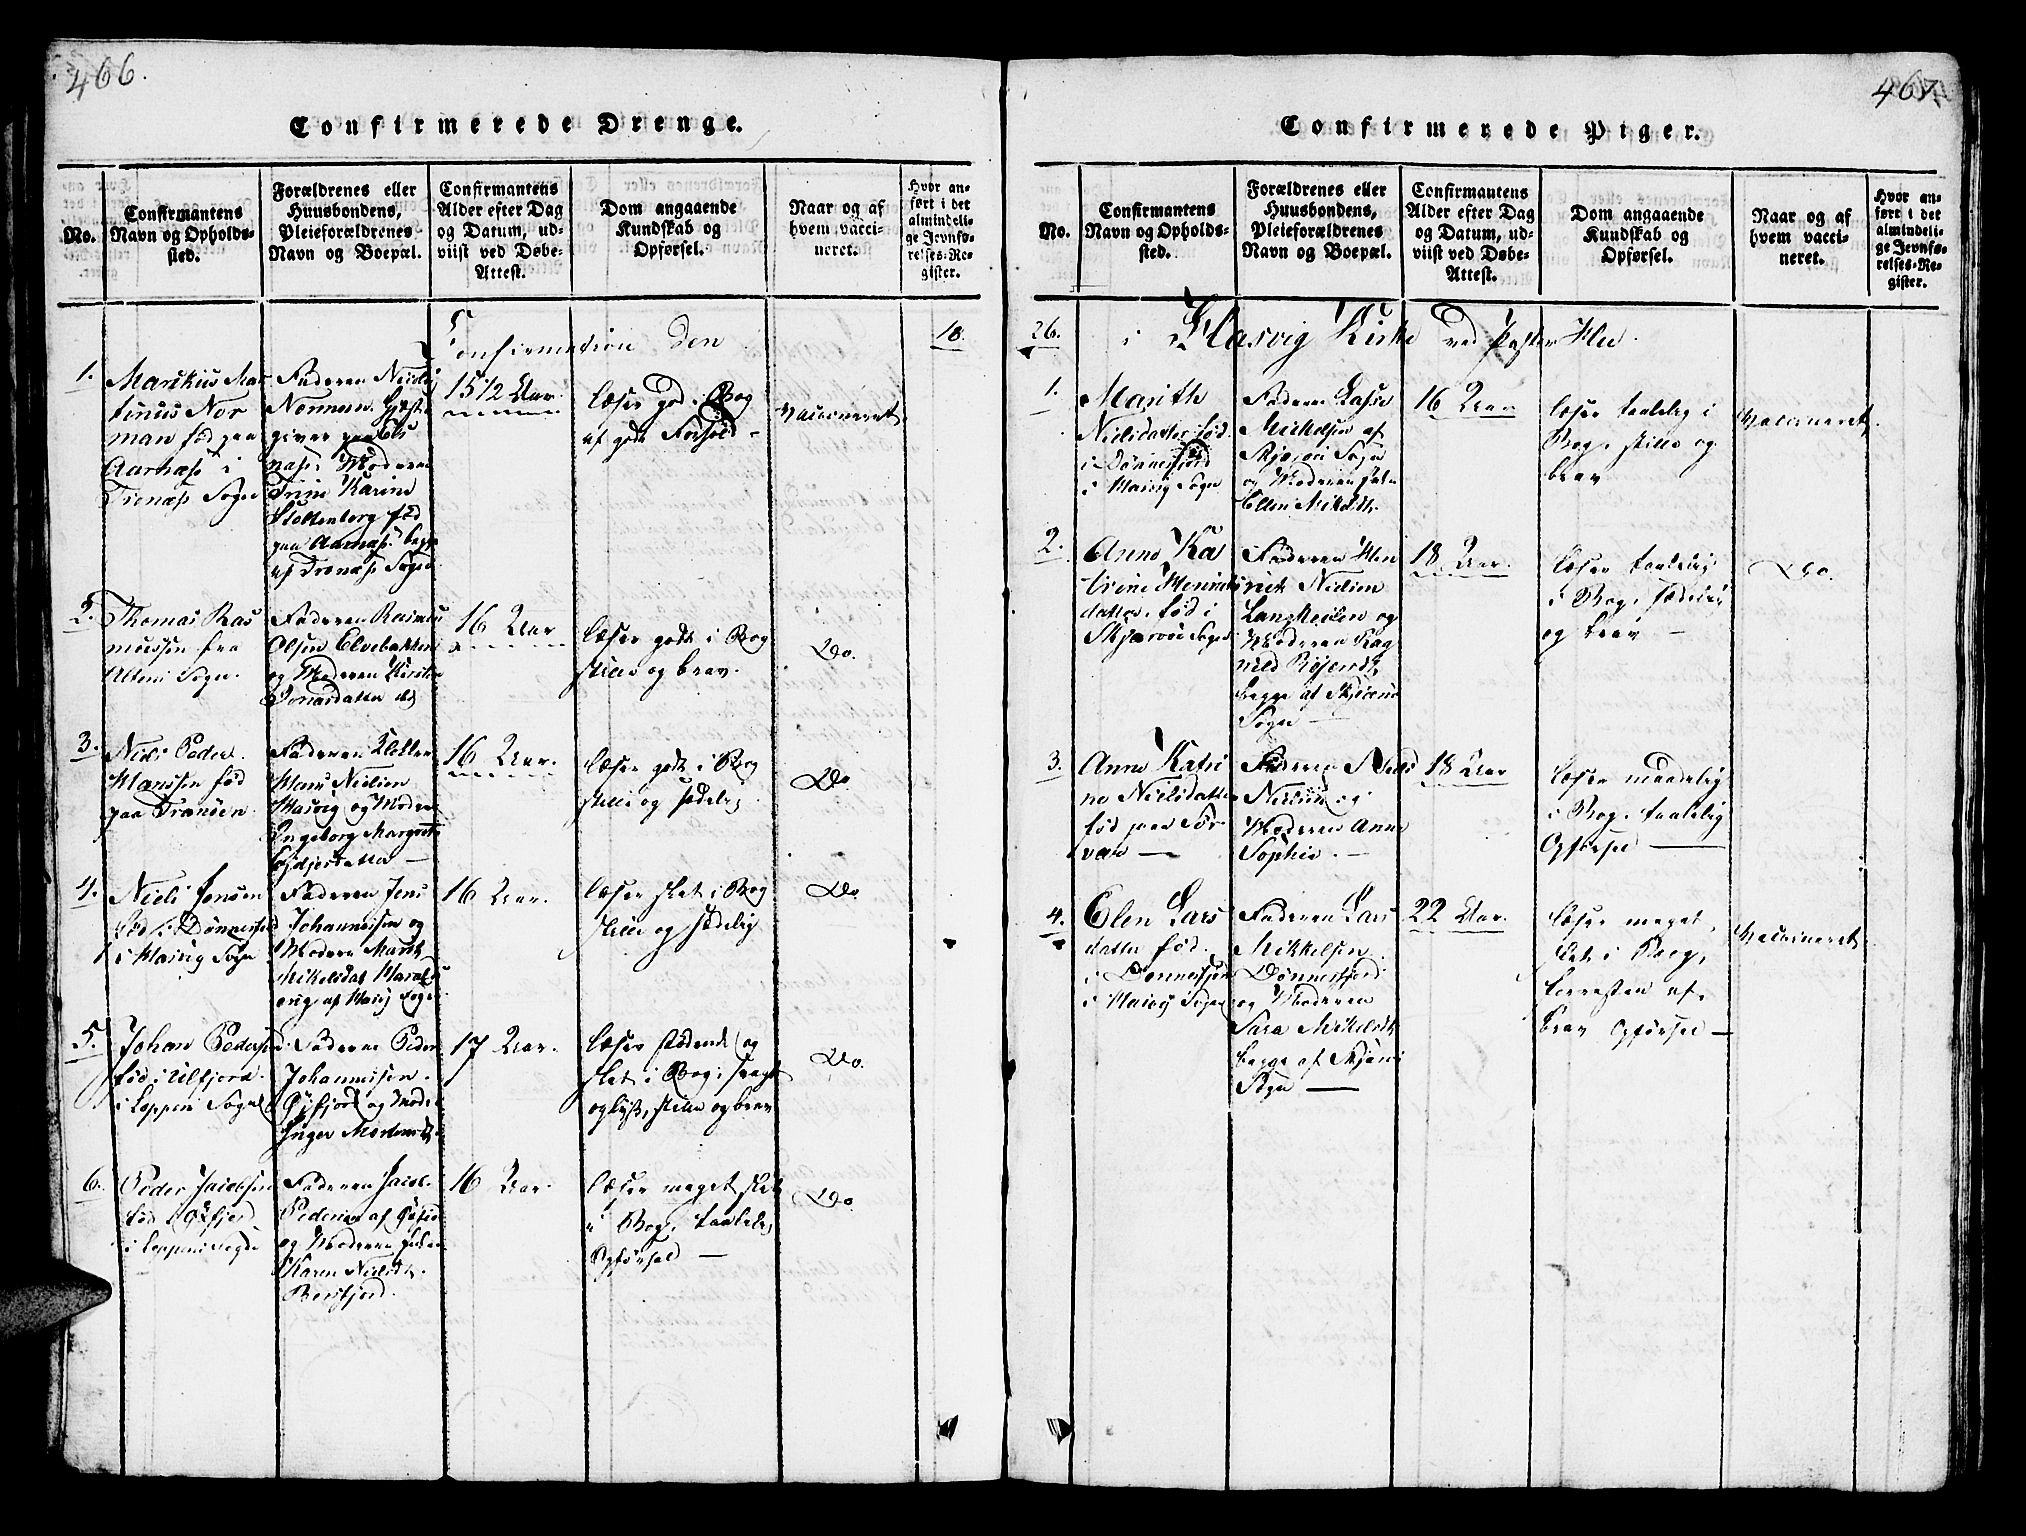 466.
Confirmerede Drenge.
No.
Confirmantens
Navn og Opholds-
sted.
Forældrenes eller
Huusbondens,
Pleieforældrenes
Navn og Boepæl.
Confirmantens
Alder efter Dag
og Datum, ud-
viist ved Døbe-
Attest.
Dom angaaende
Kundskab og
Opførsel.
Naar og af
hvem vacci-
neret.
Hvor an-
ført i det
almindeli-
ge Jevnfø-
relses-Re-
gister.
Confirmation den
18
1.
Markus Mar
tinus Nor
man fød paa
Aarnæs i
Tranæs Sogn
Faderen
Norman Gjæst
giver paa
næs Moderen
Trine Karine
Stoltenberg fød
paa Aarnæs begge
af Tranæs Sogn
15 1/2 Aar
læser god i Bog
af godt Forhold
Vaccineret
2.
Thomas Ras
mussen fra
Altens Sogn.
Faderen Rasmus
Olsen Elvebakken
og Moderen Kirsten
Jonasdatter
16 Aar
læser godt i Bog
stille og brav.
Do.
3.
Niels Peder
Hanssen fød
paa Tranøen
Faderen Klokker
Hans Nielsen
Hasvig og Moder
Ingeborg Margreth
16 Aar.
læser godt i Bog
stille og sædelig
Do
4.
Niels Jensen
fød i Dønnesfjord
i Hasvig Sogn
Faderen Jens
Johannesen og
Moderen Marit
Mikelsdat
af Hasvig Sogn
16 Aar.
læser slet i Bog
stille og sædelig
Do
5.
Johan Pedersen
fød i Ulfjord
i Loppens Sogn
Faderen Peder
Johannesen
Øxfjord og Moder
Inger Mortensdt
17 Aar.
læser stødende og
slet i Bog,
stille og brav
Do.
6.
Peder Jacobsen
fød i Øxfjord
i Loppens Sogn
Faderen Jacob
Pedersen af
og Moderen
Karen Nielsdt.
Bersfjord.
16 Aar.
læser meget slet
i Bog, taalelig
Opførsel —
Do
467
Confirmerede Piger.
No.
Confirmantens
Navn og Opholds-
sted.
Forældrenes eller
Huusbondens,
Pleieforældrenes
Navn og Boepæl.
Confirmantens
Alder efter Dag
og Datum, ud-
viist ved Døbe-
Attest.
Dom angaaende
Kundskab og
Opførsel.
Naar og af
hvem vacci-
neret.
Hvor an-
ført i det
almindeli-
ge Jevnfø-
relses-Re-
gister.
26.
i Hasvig Kirke ved Pastor
1.
Marithe
Nielsdatter fød
i Dønnesfjord
i Hasvig Sogn
Faderen
Mickelsen af
Skjervøe Sogn
og Moderen
Ellen Nielsdt.
16 Aar
læser taalelig i
Bog, stille og
brav
Vaccineret
2.
Anne Ka
trine Henriks
datter, fød i
Skjervøe Sogn
Faderen Hen
rich Nielsen
og
Moderen Rag
nild
begge af Skjervøe
Sogn —
18 Aar.
læser taalelig
i Bog, sædelig
og brav —
Do.
3.
Anne Katri
ne Nielsdatter
fød paa Sør
vær —
Faderen Niels
Nielsen og
Moderen Anne
Sophie. —
18 Aar
læser maadelig
i Bog, taalelig
Opførsel —
4.
Elen Lars
datter fød
i Dønnesfjord
i Hasvig Sogn
Faderen Lars
Mikkelsen
Dønnesfjord
og Moderen
Sara Mikelsdt
begge af Skjervøe
Sogn —
22 Aar.
læser meget
slet i Bog,
forresten af
brav Opførsel —
Vaccineret